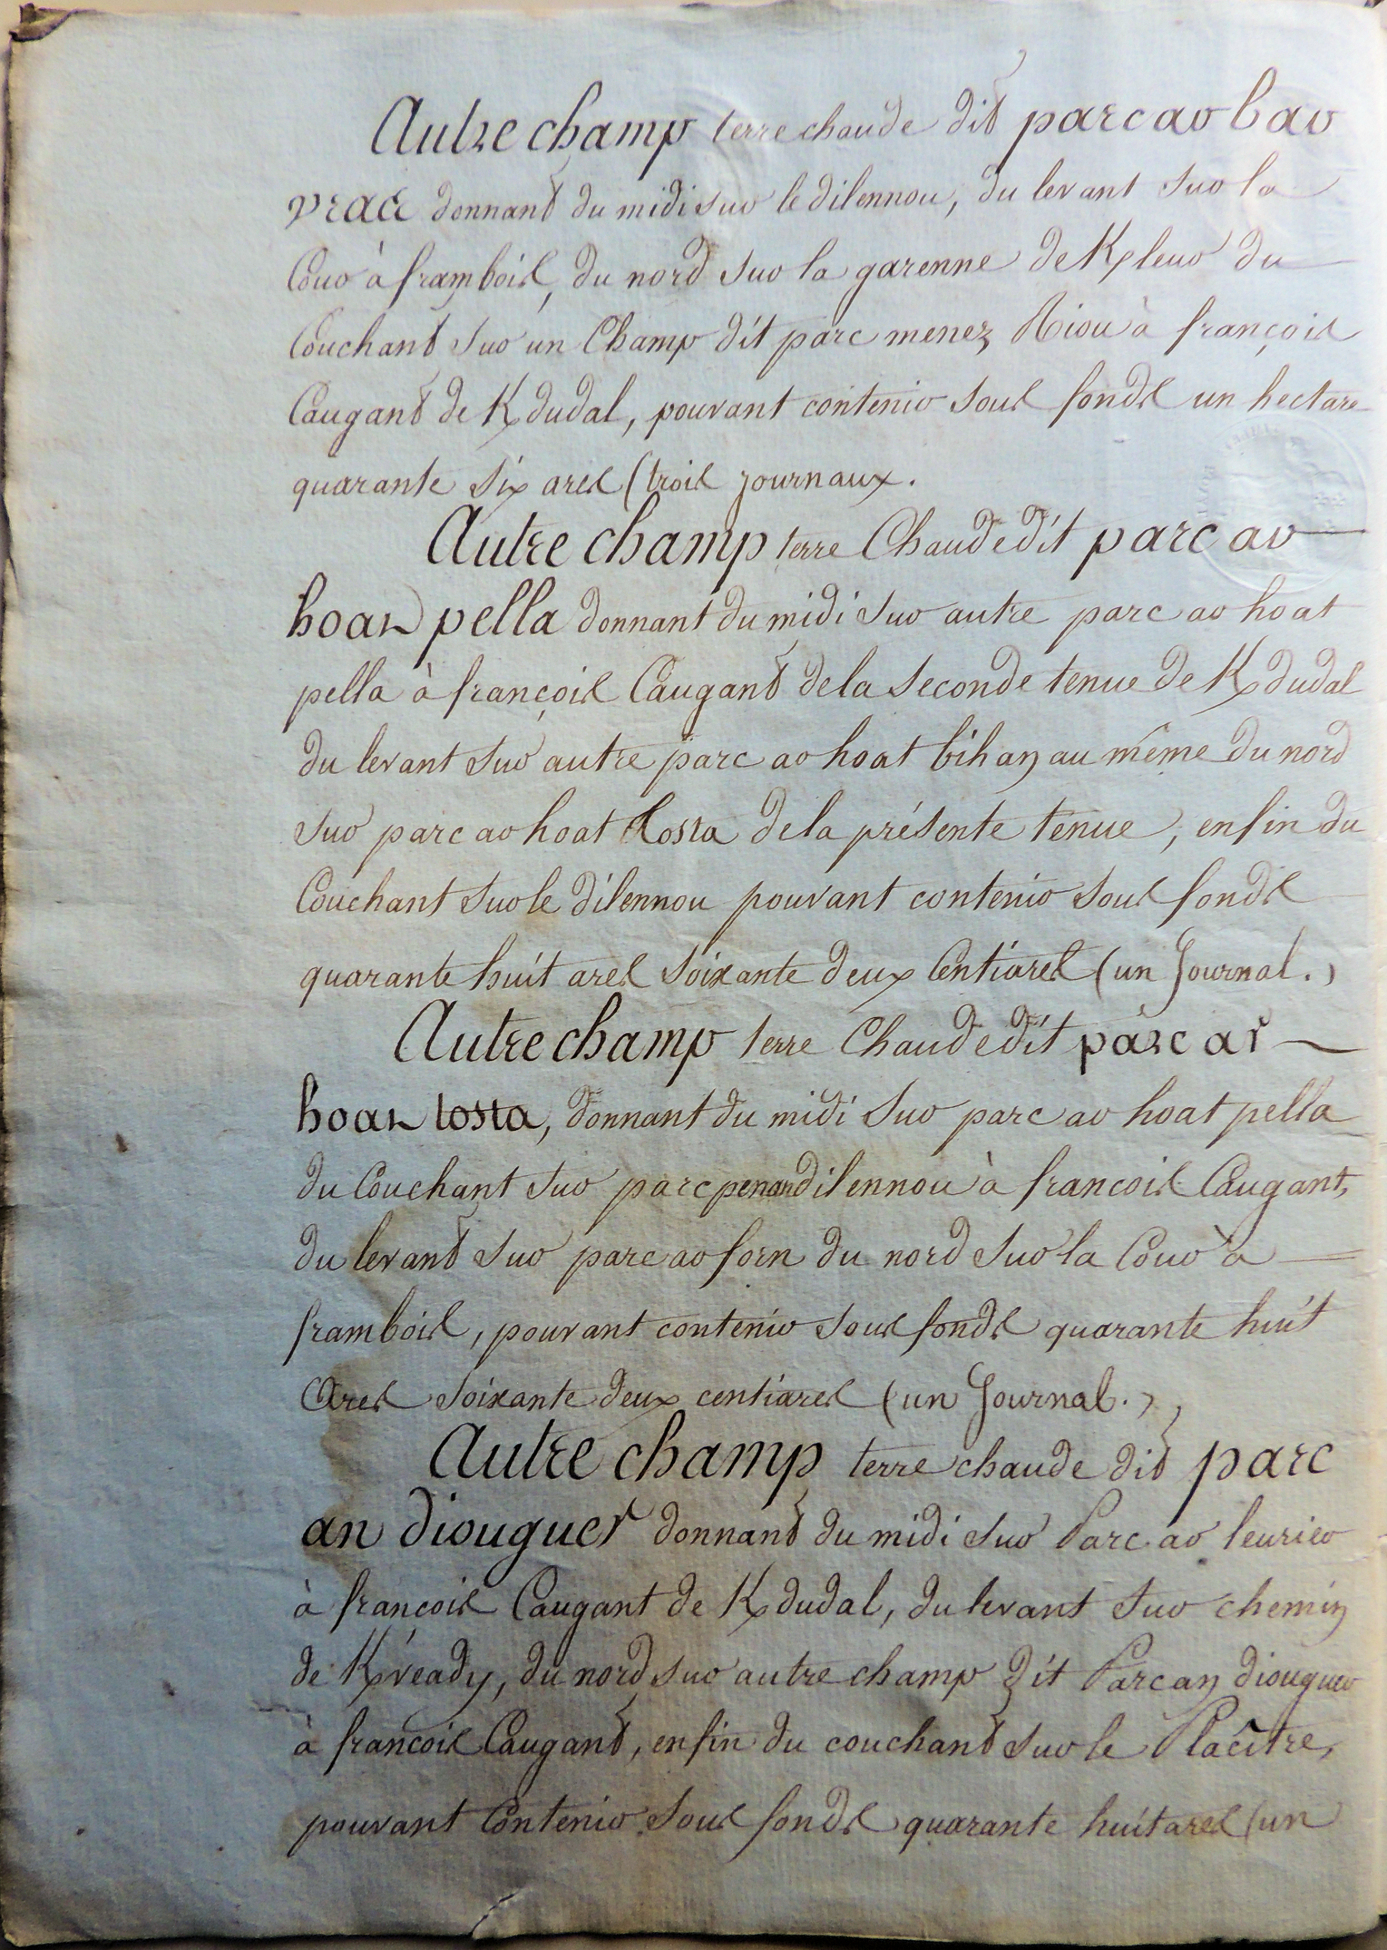 Autre champ terre chaude dit parc ar bar
vras donnant du midi sur le dilennou, du levant sur la
Cour à frambois, du nord sur la garenne de K/pleur du
Couchant sur un Champ dit parc menez Riou à françois
Caugant de K/dudal, pouvant contenir sous fonds un hectare
quarante six ares (trois journaux.
Autre champ terre Chaude dit parc ar
hoat pella donnant du midi sur autre parc ar hoat
pella à françois Caugant de la seconde tenue de K/dudal
du levant sur autre parc ar hoat bihan au même du nord
sur parc ar hoat tosta de la présente tenue, enfin du
Couchant sur le dilennou pouvant contenir sous fonds
quarante huit ares soixante deux Centiares (un Journal.)
Autre champ terre Chaude dit parc ar
hoat tosta, donnant du midi sur parc ar hoat pella
du Couchant sur parc penandilennou à francois Caugant,
du levant sur parc ar forn du nord sur la Cour à
frambois, pouvant contenir sous fonds quarante huit
Ares soixante deux centiares (un Journal.),
Autre champ terre chaude dit parc
an diouguer donnant du midi sur Parc ar leurier
à francois Caugant de K/dudal, du levant sur chemin
de K/véady, du nord sur autre champ dit Parc an diouguer
à francois Caugant, enfin du couchant sur le Placître,
pouvant Contenir sous fonds quarante huit ares (un